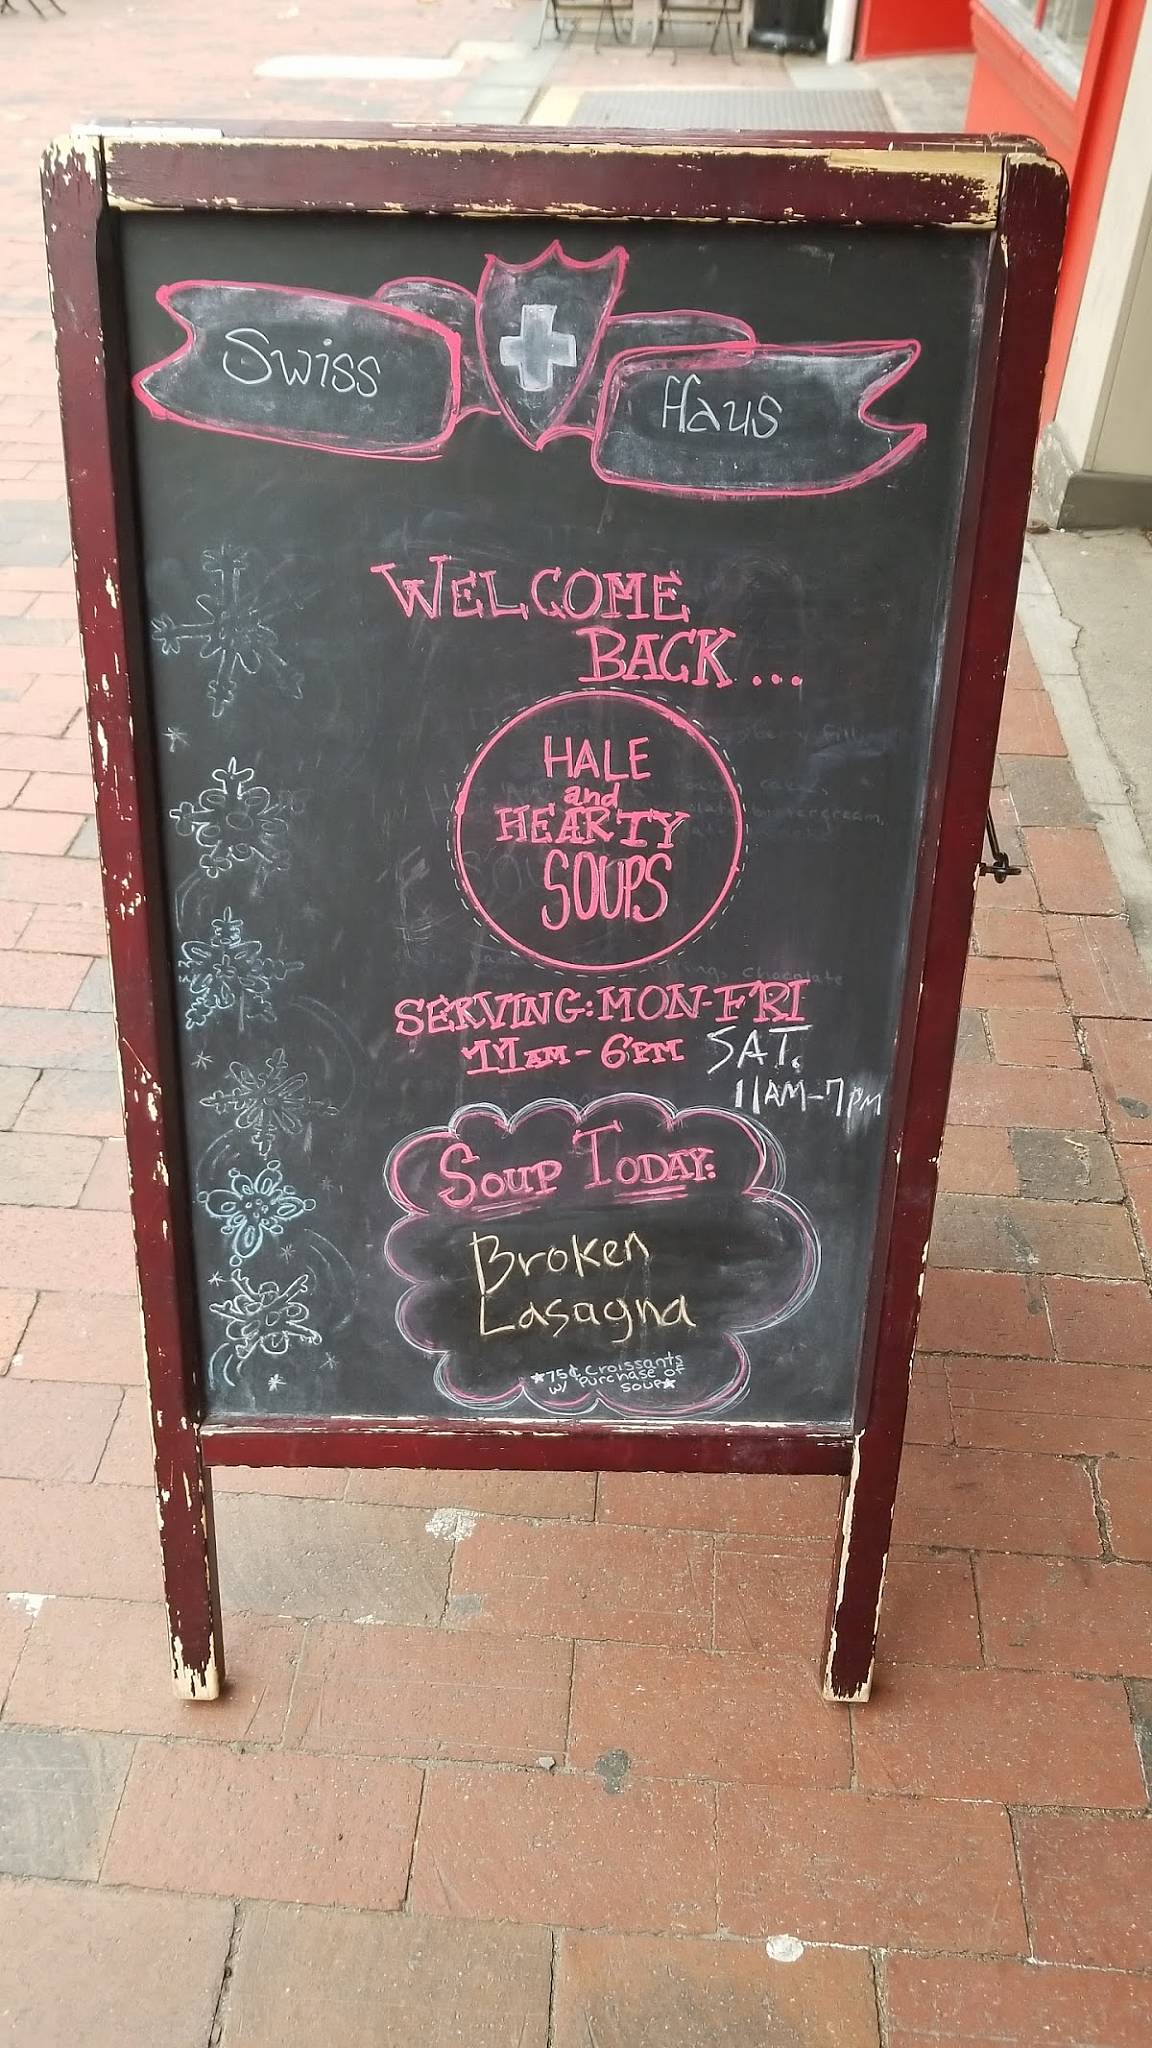 Swiss Haus
WELCOME
BACK...
HALE
and
HEARTY
SOUPS
SERVING: MON-FRI
11AM-6PM
SAT.
11AM-7PM
SOUP TODAY:
Broken
Lasagna
★75¢ Croissants
w/ Purchase of
soup★